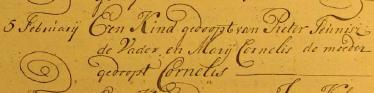 5 Februarij Een Kind gedoopt van Pieter Teunisz
de Vader, en Marij Cornelis de moeder
gedoopt Cornelis